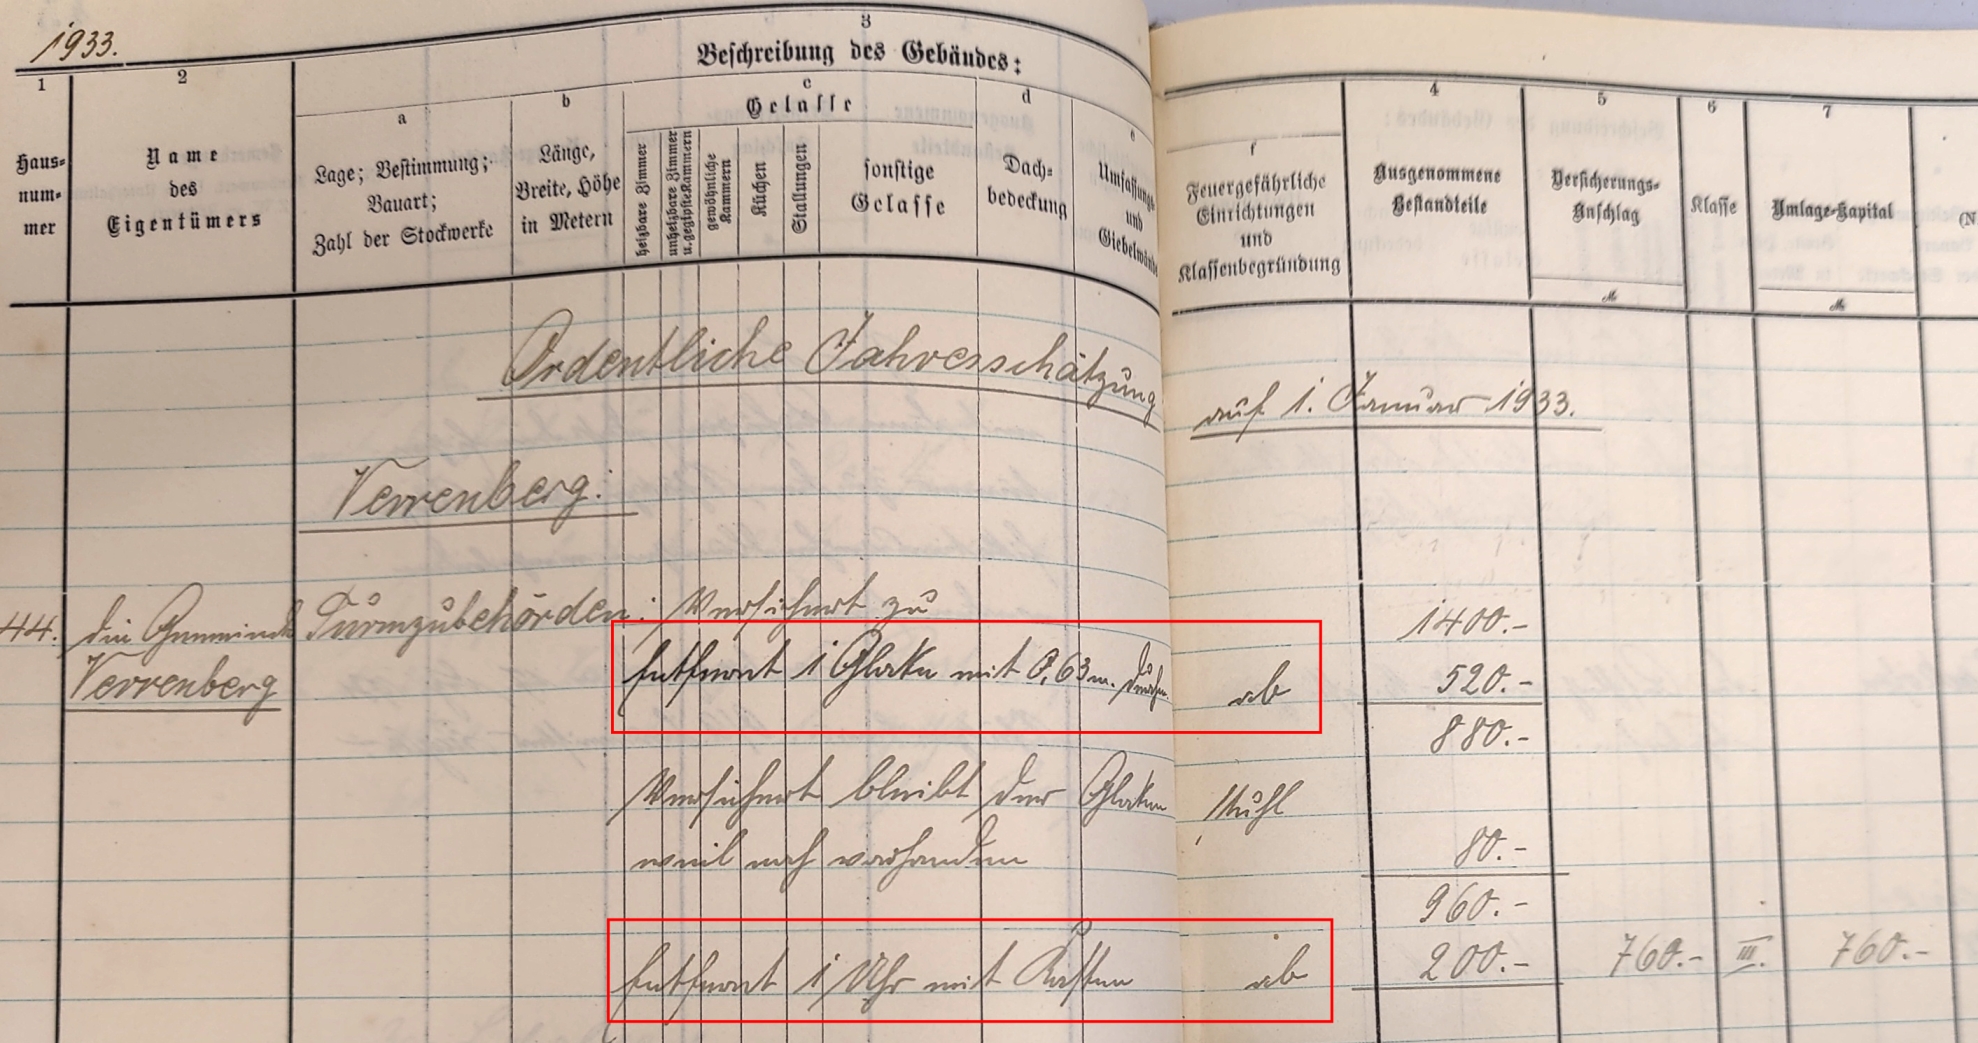 1933.
3
Beschreibung des Gebäudes:
1
2
a
b
c
d
e
f
4
5
6
7
Haus-
num-
mer
Name
des
Eigentümers
Lage; Bestimmung;
Bauart;
Zahl der Stockwerke
Länge,
Breite, Höhe
in Metern
Gelasse
heizbare Zimmer
unheizbare Zimmer
u. gegipste Kammern
gewöhnliche
Kammern
Küchen
Stallungen
sonstige
Gelasse
Dach-
bedeckung
Umfassungs-
und
Giebelwände
Feuergefährliche
Einrichtungen
und
Klassenbegründung
Ausgenommene
Bestandteile
Versicherungs-
Anschlag
M
Klasse
Umlage-Kapital
M
(N
Ordentliche Jahresschätzung auf 1. Januar 1933.
Verrenberg:
44. die Gemeinde Turmzubehörden: Versichert zu 1400.-
Verrenberg Entfernt 1 Glocke mit 0,63 m. Durchm. ab 520.-
880.-
Versichert bleibt der Glocken stuhl
weil noch vorhanden 80.-
960.-
Entfernt 1 Uhr mit Kasten ab 200.- 760.- III. 760.-